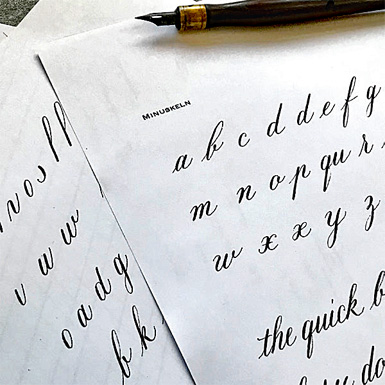 MINUSKELN
a b c d d e f g
m n o p qu r
w x x y z
the quick b
v u w
o a d g
b k